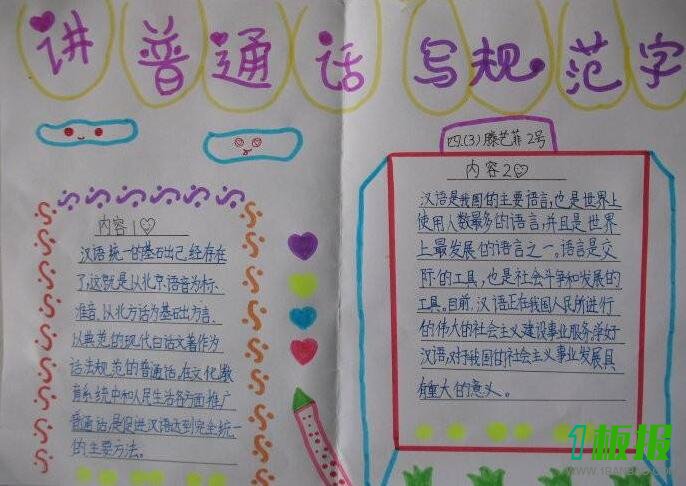 讲普通话 写规范字
四.(3) 滕艺菲 2号
内容1
汉语统一的基石出己经存在
了,这就是从北京语音为标
准音、从北方话为基础出方言、
以典范的现代白话文著作为
话法规范的普通话,在文化教
育系统中和人民生活各方面推广
普通话,是促进汉语达到完全统一
的主要方法。
内容2
汉语是我国的主要语言,也是世界上
使用人数最多的语言,并且是世界
上最发展的语言之一。语言是交
际的工具,也是社会斗争和发展的
工具。目前,汉语正在我国人民所进行
的伟大的社会主义建设事业服务,学好
汉语,对于我国的社会主义事业发展具
有重大的意义。
1板报
WWW.1BANBAO.COM